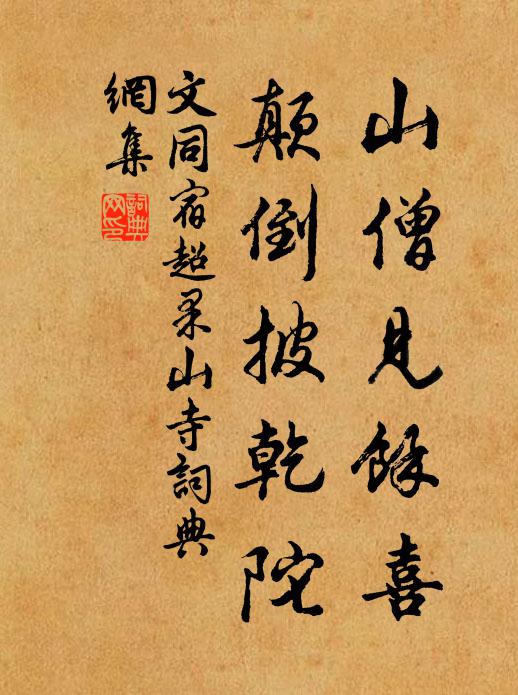 山僧見餘喜
顛倒披乾陀
文同宿超果山寺詞典
網集
詞典
网印